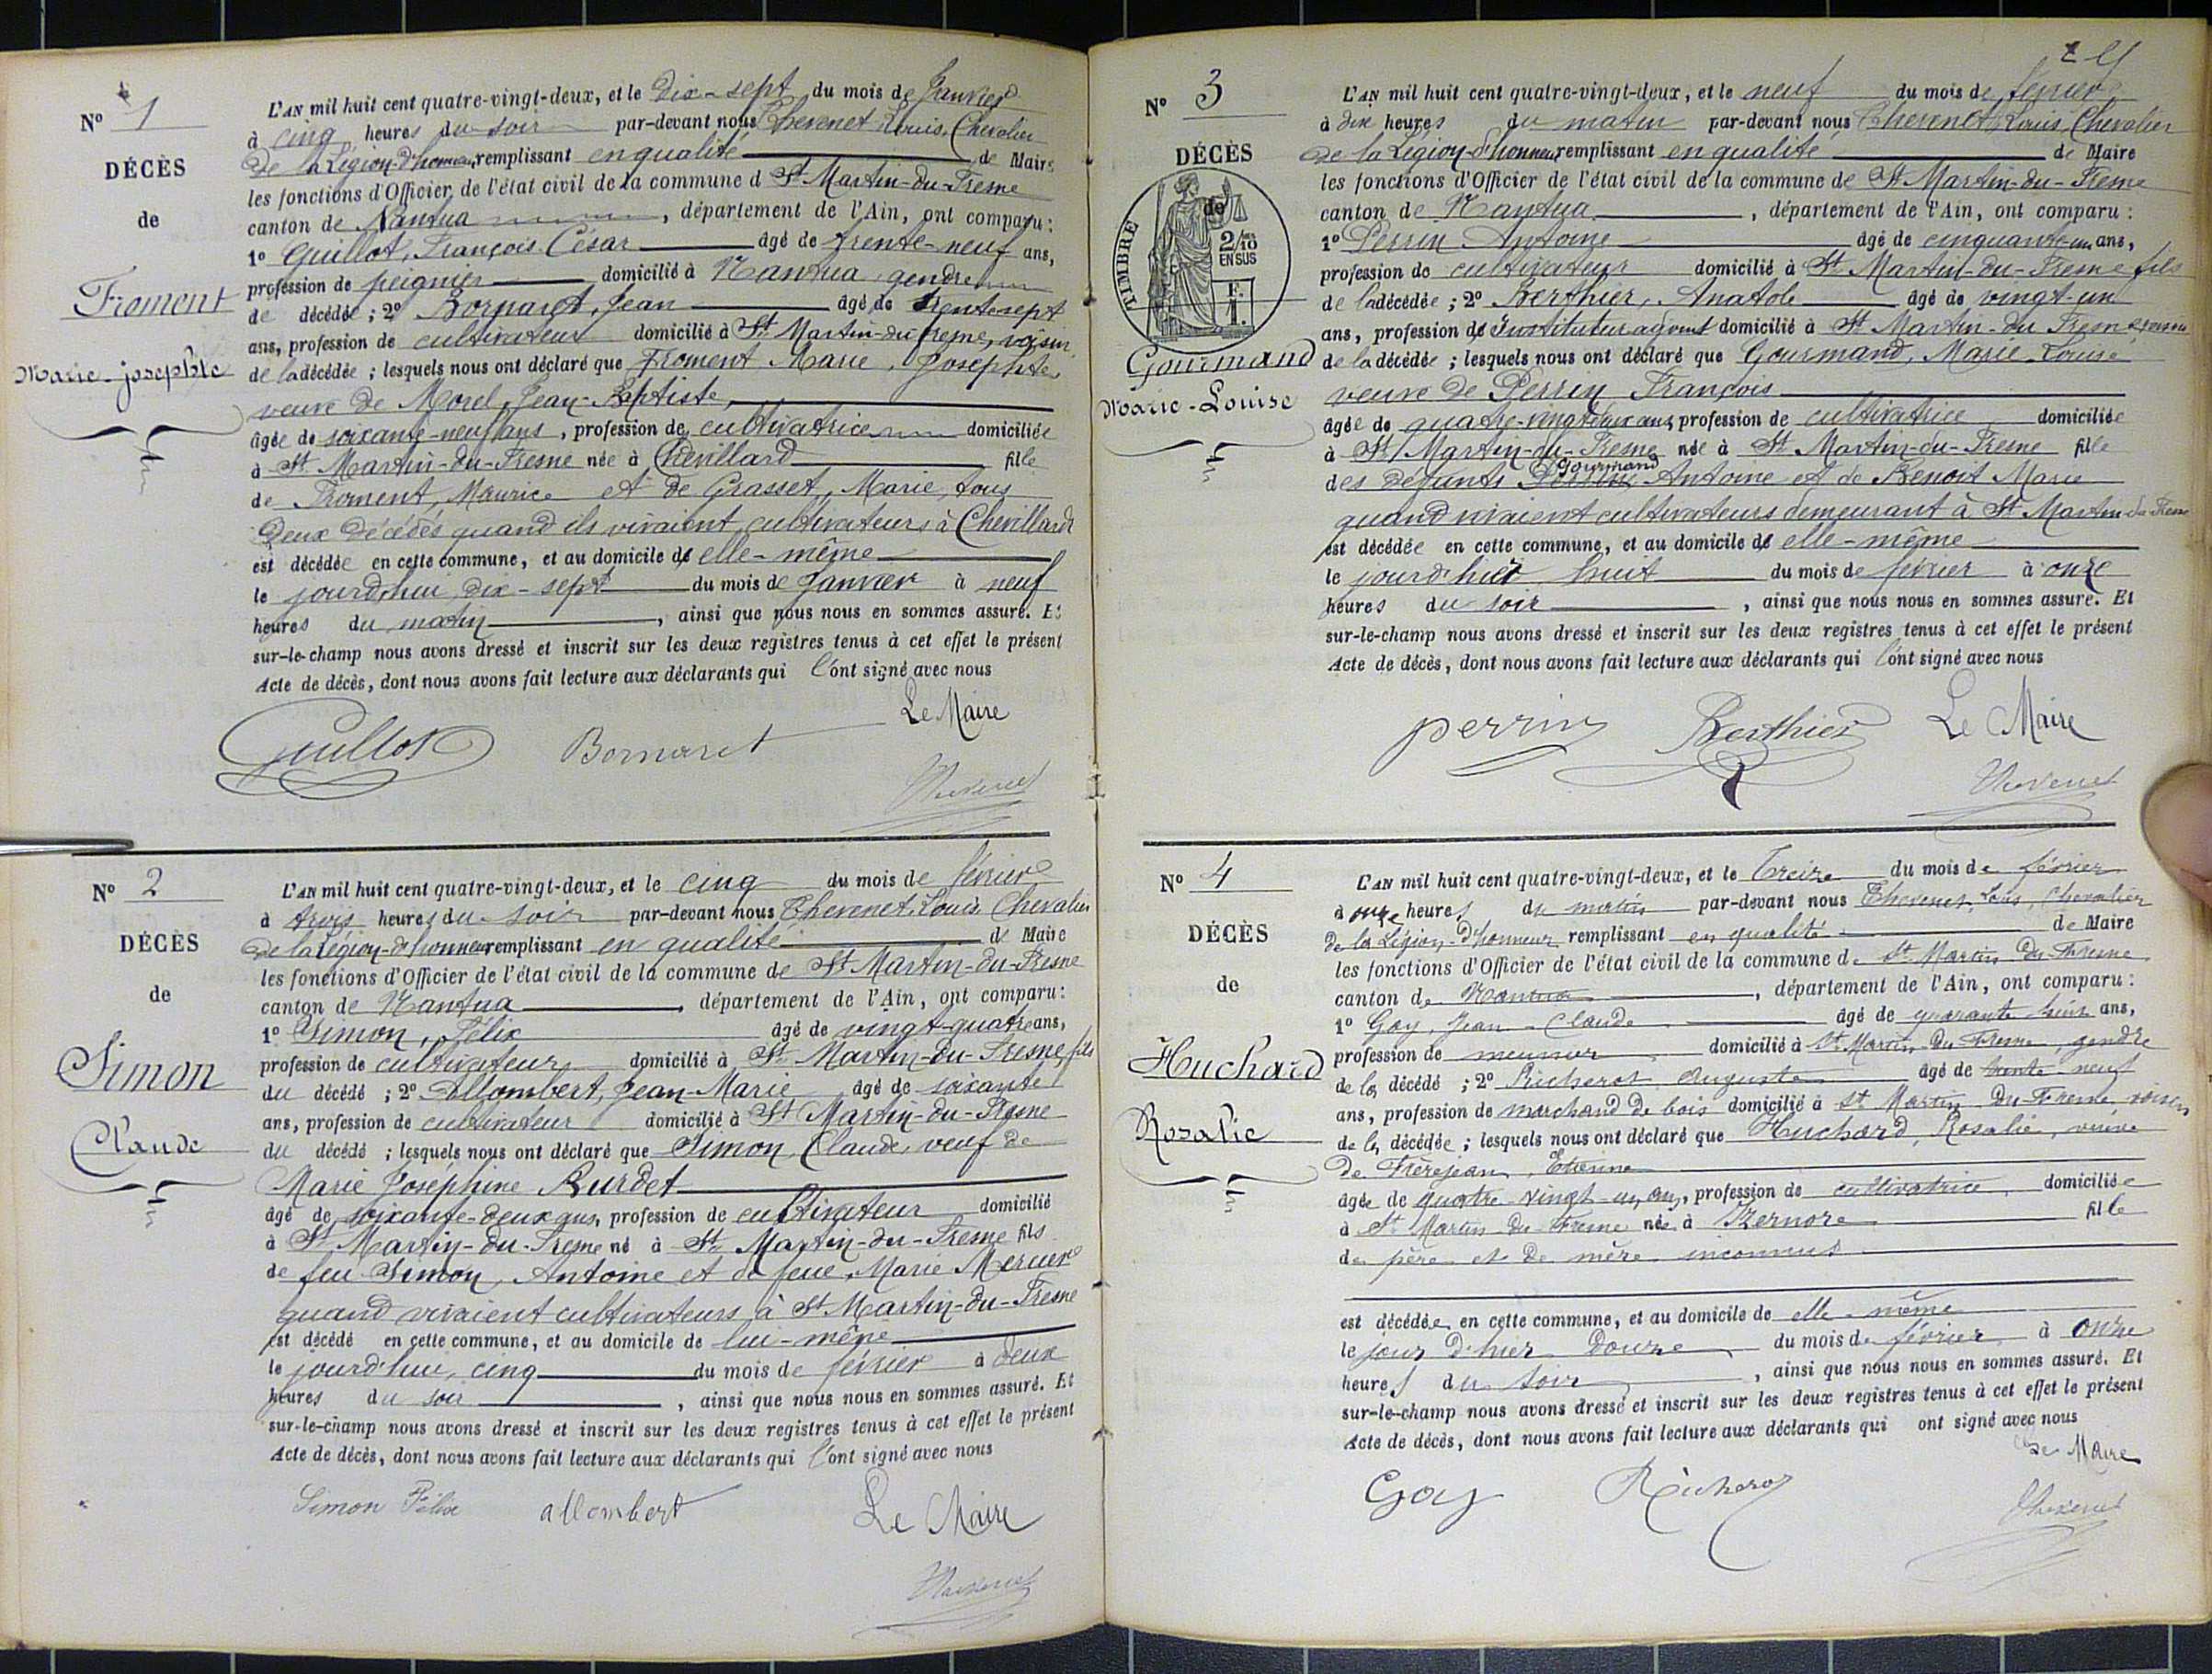 N° 1
DÉCÈS
de
Froment
Marie-josephte
L'AN mil huit cent quatre-vingt-deux, et le Dix-sept du mois de Janvier
à cinq heures du soir par-devant nous Thevenet Louis, Chevalier
de la Légion-d'honneur remplissant en qualité de Maire
les fonctions d'Officier de l'état civil de la commune d St Martin-du-Fresne
canton de Nantua, département de l'Ain, ont comparu :
1° Guillot, François César âgé de trente-neuf ans,
profession de peignier domicilié à Nantua, gendre
de décédée ; 2° Bornaret, Jean âgé de trente sept
ans, profession de cultivateur domicilié à St Martin-du fresne, voisin
de la décédée ; lesquels nous ont déclaré que Froment Marie, Josephte,
veuve de Morel, Jean-Baptiste,
âgée de soixante-neuf ans, profession de cultivatrice domiciliée
à St Martin-du-Fresne née à Chevillard fille
de Froment, Maurice et de Grasset, Marie, tous
deux décédés quand ils vivaient cultivateurs à Chevillard
est décédée en cette commune, et au domicile de elle-même
le jourd'hui dix-sept du mois de Janvier à neuf
heures du matin, ainsi que nous nous en sommes assuré. Et
sur-le-champ nous avons dressé et inscrit sur les deux registres tenus à cet effet le présent
Acte de décès, dont nous avons fait lecture aux déclarants qui l'ont signé avec nous
Le Maire
Guillot Bornaret
Thevenet
N° 2
DÉCÈS
de
Simon
Claude
L'AN mil huit cent quatre-vingt-deux, et le cinq du mois de février
à trois heures du soir par-devant nous Thevenet, Louis Chevalier
de la Légion-d'honneur remplissant en qualité de Maire
les fonctions d'Officier de l'état civil de la commune de St Martin-du-Fresne
canton de Nantua, département de l'Ain, ont comparu :
1° Simon, Félix âgé de vingt-quatre ans,
profession de cultivateur domicilié à St Martin-du-Fresne, fils
du décédé ; 2° Allombert, Jean-Marie âgé de soixante
ans, profession de cultivateur domicilié à St Martin-du-Fresne
du décédé ; lesquels nous ont déclaré que Simon, Claude, veuf de
Marie Joséphine Burdet
âgé de soixante-deux ans, profession de cultivateur domicilié
à St Martin-du-Fresne né à St Martin-du-Fresne fils
de feu Simon, Antoine et de feue, Marie Mercier
quand vivaient cultivateurs à St Martin-du-Fresne
est décédé en cette commune, et au domicile de lui-même
le jourd'hui, cinq du mois de février à deux
heures du soir, ainsi que nous nous en sommes assuré. Et
sur-le-champ nous avons dressé et inscrit sur les deux registres tenus à cet effet le présent
Acte de décès, dont nous avons fait lecture aux déclarants qui l'ont signé avec nous
Simon Félix allombert Le Maire
Thevenet
N° 3
DÉCÈS
de
TIMBRE
2/10
EN SUS
F.
1.
Gourmand
Marie-Louise
L'AN mil huit cent quatre-vingt-deux, et le neuf du mois de février
à dix heures du matin par-devant nous Thevenet, Louis, Chevalier
de la Légion-d'honneur remplissant en qualité de Maire
les fonctions d'Officier de l'état civil de la commune de St Martin-du-Fresne
canton de Nantua, département de l'Ain, ont comparu :
1° Perrin Antoine âgé de cinquante-un ans,
profession de cultivateur domicilié à St Martin-du-Fresne fils
de la décédée ; 2° Berthier, Anatole âgé de vingt-un
ans, profession de Instituteur adjoint domicilié à St Martin-du Fresne voisin
de la décédée ; lesquels nous ont déclaré que Gourmand, Marie-Louise
veuve de Perrin François
âgée de quatre-vingt-deux ans, profession de cultivatrice domiciliée
à St Martin-du-Fresne née à St Martin-du-Fresne fille
des défunts Perrin Gourmand Antoine et de Benoit Marie
quand vivaient cultivateurs demeurant à St Martin-du-Fresne
est décédée en cette commune, et au domicile de elle-même
le jourd'hier huit du mois de février à onze
heures du soir, ainsi que nous nous en sommes assuré. Et
sur-le-champ nous avons dressé et inscrit sur les deux registres tenus à cet effet le présent
Acte de décès, dont nous avons fait lecture aux déclarants qui l'ont signé avec nous
perrin Berthier Le Maire
Thevenet
N° 4
DÉCÈS
de
Huchard
Rosalie
L'AN mil huit cent quatre-vingt-deux, et le Treize du mois de février
à onze heures du matin par-devant nous Thevenet, Louis, Chevalier
de la Légion-d'honneur remplissant en qualité de Maire
les fonctions d'Officier de l'état civil de la commune de St Martin-Du-Fresne
canton de Nantua, département de l'Ain, ont comparu :
1° Goy, Jean-Claude âgé de quarante huit ans,
profession de meunier domicilié à St Martin Du Fresne, gendre
de la décédé ; 2° Richerot Auguste âgé de trente-neuf
ans, profession de marchand de bois domicilié à St Martin Du-Fresne, voisin
de la décédée ; lesquels nous ont déclaré que Huchard, Rosalie, veuve
de Frèrejean, Etienne
âgée de quatre-vingt-un ans, profession de cultivatrice domiciliée
à St Martin Du Fresne née à Izernore fille
de père et de mère inconnus
est décédée en cette commune, et au domicile de elle-même
le jour d'hier Douze du mois de février à onze
heures du soir, ainsi que nous nous en sommes assuré. Et
sur-le-champ nous avons dressé et inscrit sur les deux registres tenus à cet effet le présent
Acte de décès, dont nous avons fait lecture aux déclarants qui ont signé avec nous
Le Maire
Goy Richerot
Thevenet